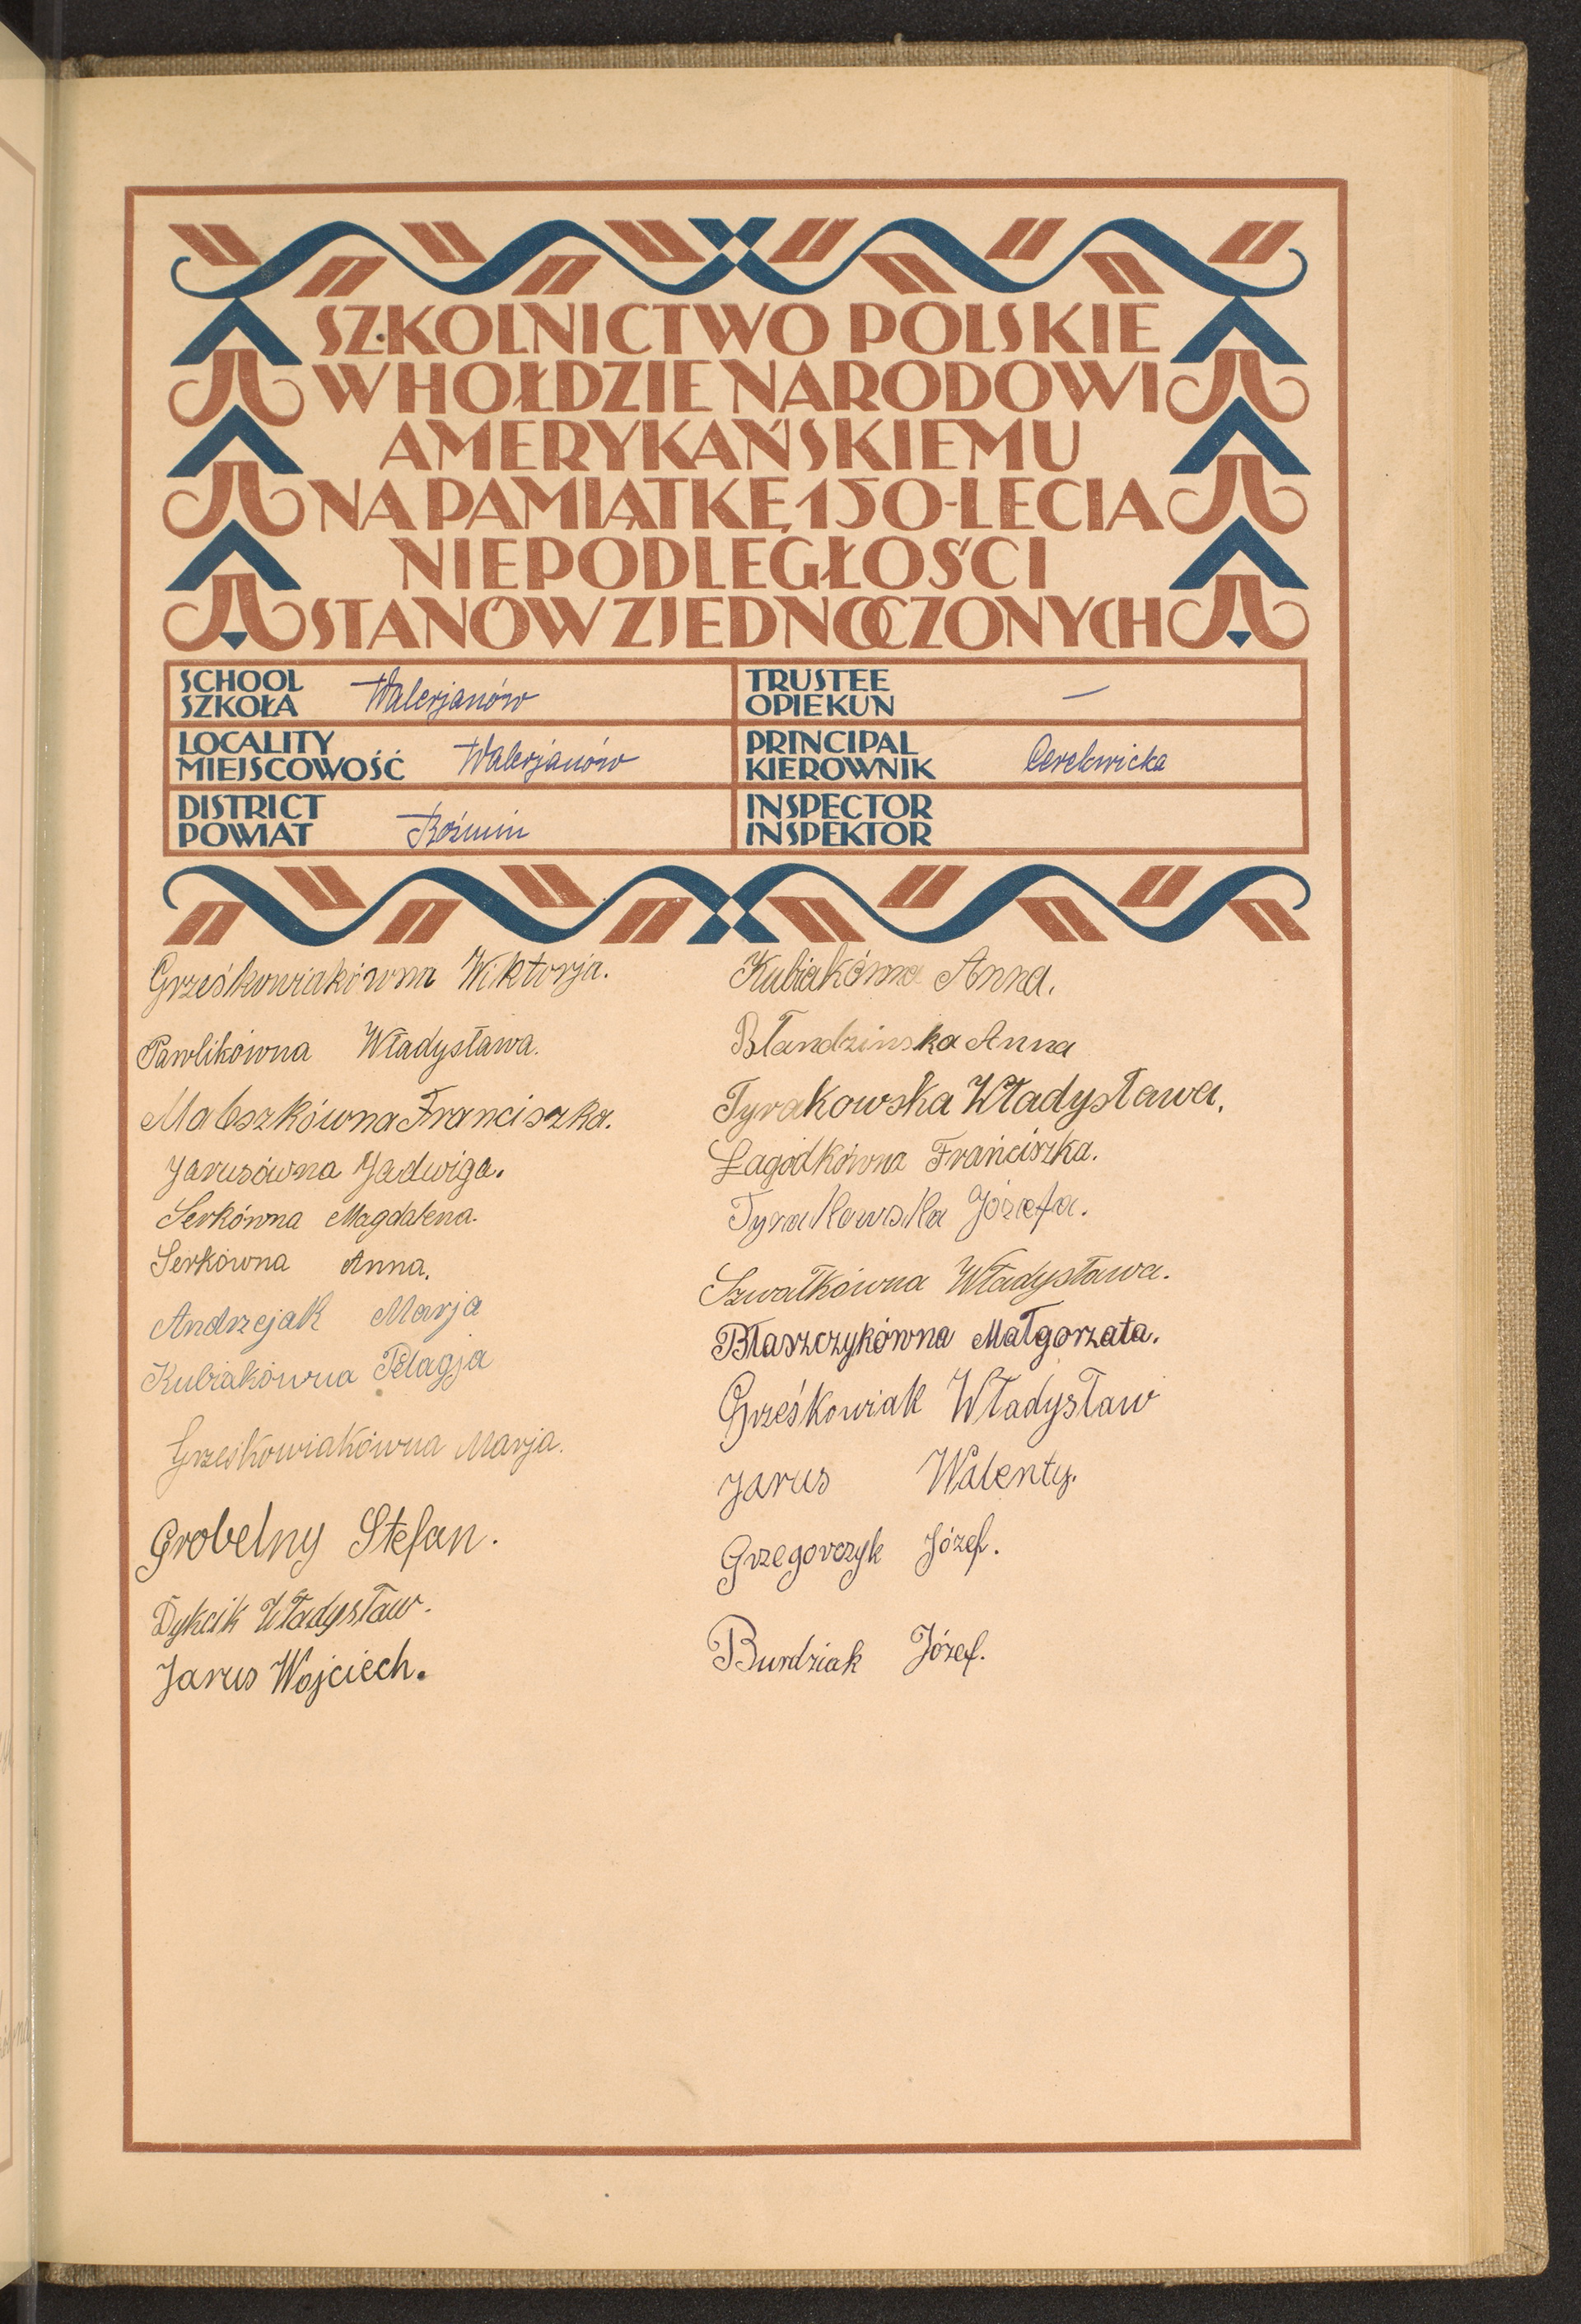 SZKOLNICTWO POLSKIE
W HOŁDZIE NARODOWI
AMERYKAŃSKIEMU
NA PAMIĄTKĘ 150-LECIA
NIEPODLEGŁOŚCI
STANÓW ZJEDNOCZONYCH
SCHOOL
SZKOŁA Walerjanów
TRUSTEE
OPIEKUN —
LOCALITY
MIEJSCOWOŚĆ Walerjanów
PRINCIPAL
KIEROWNIK Cerekwicka
DISTRICT
POWIAT Koźmin
INSPECTOR
INSPEKTOR
Grześkowiakówna Wiktorja.
Pawlikówna Władysława.
Mateszkówna Franciszka.
Jarusówna Jadwiga.
Serkówna Magdalena.
Serkówna Anna.
Andrzejak Marja
Kubiakówna Pelagja
Grześkowiakówna Marja.
Grobelny Stefan.
Dykcik Władysław.
Jarus Wojciech.
Kubiakówna Anna.
Błandzinska Anna
Tyrakowska Władysława.
Łagódkówna Franciszka.
Tyrakowska Józefa.
Szwałkówna Władysława.
Błaszczykówna Małgorzata.
Grześkowiak Władysław
Jarus Walenty.
Grzegorczyk Józef.
Burdziak Józef.